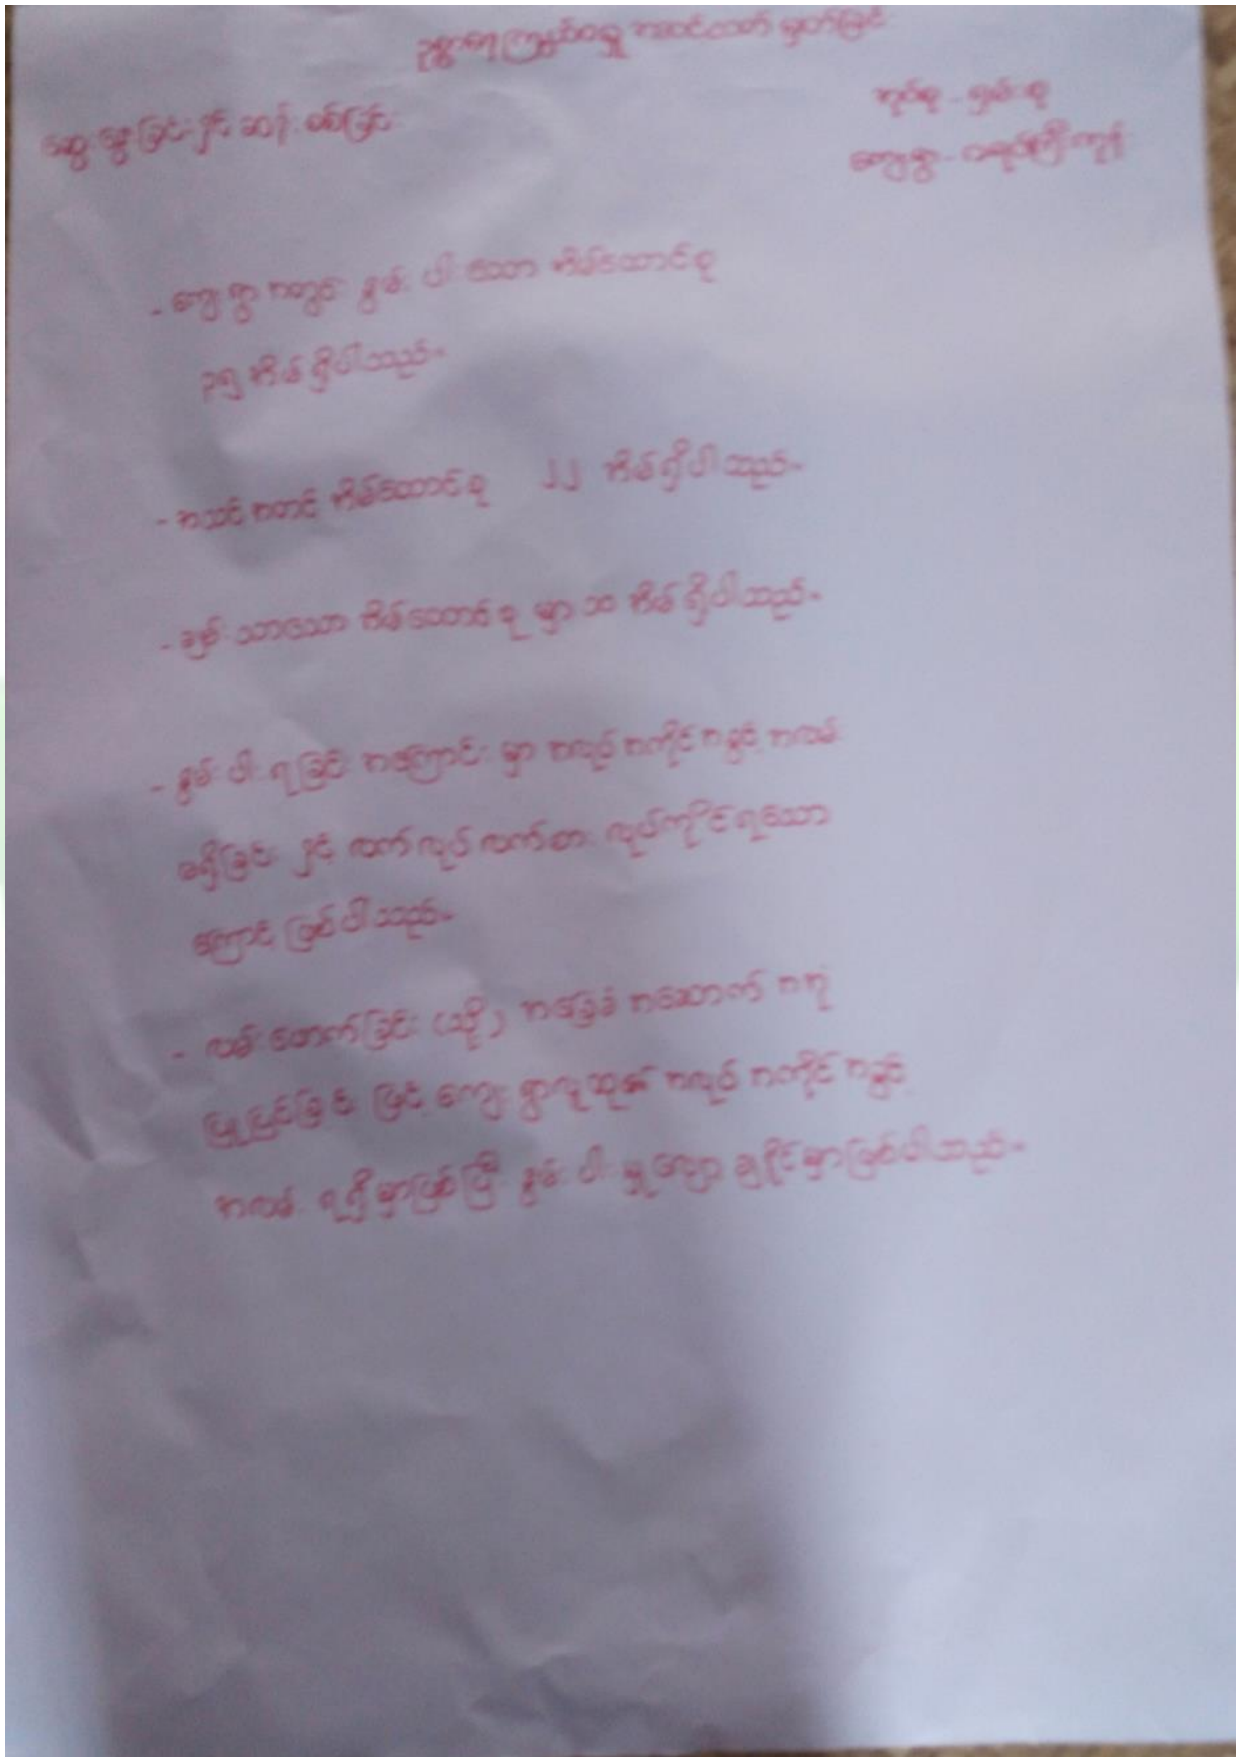 ဥစ္စာဓနကြွယ်ဝမှု အဆင့်သတ်မှတ်ခြင်း
အုပ်စု - ရှမ်းစု
ဆွေးနွေးခြင်းနှင့် ဆန်းစစ်ခြင်း
ကျေးရွာ -
- ကျေးရွာအတွင်း နွမ်းပါးသော အိမ်ထောင်စု
၃၅ အိမ်ရှိပါသည်။
- အသင့်အတင့် အိမ်ထောင်စု ၂၂ အိမ်ရှိပါသည်။
- ချမ်းသာသော အိမ်ထောင်စု မှာ ၁၀ အိမ်ရှိပါသည်။
- နွမ်းပါးရခြင်း အကြောင်းမှာ အလုပ်အကိုင်အခွင့်အလမ်း
မရှိခြင်း နှင့် လက်လုပ်လက်စား လုပ်ကိုင်ရသော
ကြောင့် ဖြစ်ပါသည်။
- လမ်းဖောက်ခြင်း (သို့) အခြေခံအဆောက်အအုံ
ပြုပြင်ခြင်းဖြင့် ကျေးရွာလူထု၏ အလုပ်အကိုင်အခွင့်
အလမ်း ရရှိမှာဖြစ်ပြီး နွမ်းပါးမှုလျော့ချနိုင်မှာဖြစ်ပါသည်။